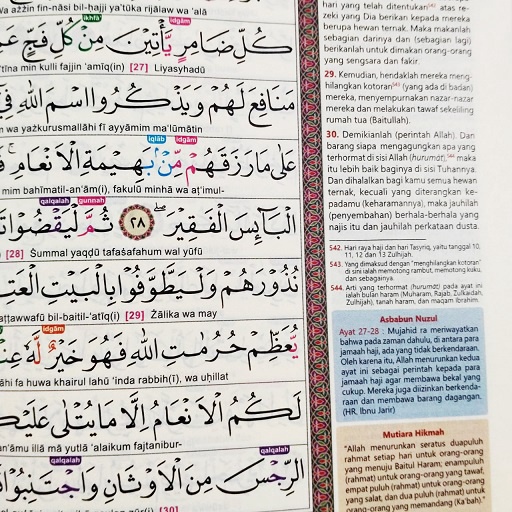 Wa ażżin fin-nāsi bil-ḥajji ya'tūka rijālaw wa 'alā
ikhfā' idgām
كُلِّ ضَامِرٍ يَّأْتِيْنَ مِنْ كُلِّ فَجٍّ
tīna min kulli fajjin 'amīq(in) [27] Liyasyhadū
مَنَافِعَ لَهُمْ وَيَذْكُرُوا اسْمَ اللّٰهِ فِيْٓ
wa yażkurusmallāhi fī ayyāmim ma'lūmātin
iqlāb idgām
عَلٰى مَا رَزَقَهُمْ مِّنْۢ بَهِيْمَةِ الْاَنْعَامِۚ
mim bahīmatil-an'ām(i), fakulū minhā wa aṭ'imul-
qalqalah gunnah
الْبَاۤىِٕسَ الْفَقِيْرَ ۖ ٢٨ ثُمَّ لْيَقْضُوْا
[28] Ṡummal yaqḍū tafaṡahum wal yūfū
نُذُوْرَهُمْ وَلْيَطَّوَّفُوْا بِالْبَيْتِ
aṭṭawwafū bil-baitil-'atīq(i) [29] Żālika wa may
idgām
يُّعَظِّمْ حُرُمٰتِ اللّٰهِ فَهُوَ خَيْرٌ لَّهٗ
āhi fa huwa khairul lahū 'inda rabbih(ī), wa uḥillat
لَكُمُ الْاَنْعَامُ اِلَّا مَا يُتْلٰى
an'āmu illā mā yutlā 'alaikum fajtanibur-
qalqalah qalqalah
الرِّجْسَ مِنَ الْاَوْثَانِ وَاجْتَنِبُوْا
[30]
hari yang telah ditentukan⁵⁴² atas re-
zeki yang Dia berikan kepada mereka
berupa hewan ternak. Maka makanlah
sebagian darinya dan (sebagian lagi)
berikanlah untuk dimakan orang-orang
yang sengsara dan fakir.
29. Kemudian, hendaklah mereka meng-
hilangkan kotoran⁵⁴³ (yang ada di badan)
mereka, menyempurnakan nazar-nazar
mereka dan melakukan tawaf sekeliling
rumah tua (Baitullah).
30. Demikianlah (perintah Allah). Dan
barang siapa mengagungkan apa yang
terhormat di sisi Allah (hurumāt),⁵⁴⁴ maka
itu lebih baik baginya di sisi Tuhannya.
Dan dihalalkan bagi kamu semua hewan
ternak, kecuali yang diterangkan ke-
padamu (keharamannya), maka jauhilah
(penyembahan) berhala-berhala yang
najis itu dan jauhilah perkataan dusta.
542. Hari raya haji dan hari Tasyriq, yaitu tanggal 10,
11, 12 dan 13 Zulhijah.
543. Yang dimaksud dengan "menghilangkan kotoran"
di sini ialah memotong rambut, memotong kuku,
dan sebagainya.
544. Arti yang terhormat (hurumāt) pada ayat ini
ialah bulan haram (Muharam, Rajab, Zulkaidah,
Zulhijah), tanah haram, dan maqam Ibrahim.
Asbabun Nuzul
Ayat 27-28 : Mujahid ra meriwayatkan
bahwa pada zaman dahulu, di antara para
jamaah haji, ada yang tidak berkendaraan.
Oleh karena itu, Allah menurunkan kedua
ayat ini sebagai perintah kepada para
jamaah haji agar membawa bekal yang
cukup. Mereka juga diizinkan berkenda-
raan dan membawa barang dagangan.
(HR. Ibnu Jarir)
Mutiara Hikmah
"Allah menurunkan seratus duapuluh
rahmat setiap hari untuk orang-orang
yang menuju Baitul Haram; enampuluh
(rahmat) untuk orang-orang yang tawaf,
empat puluh (rahmat) untuk orang-orang
yang salat, dan dua puluh (rahmat) untuk
orang-orang yang memandang (Ka'bah)."